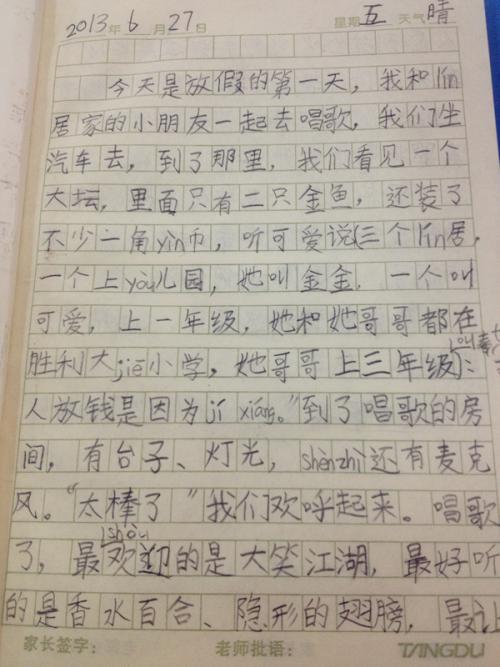 2013年6月27日 星期五 天气晴
今天是放假的第一天，我和lín
居家的小朋友一起去唱歌，我们坐
汽车去，到了那里，我们看见一个
大坛，里面只有二只金鱼，还装了
不少一角yìn币，听可爱说(三个lín居，
一个上yòu儿园，她叫金金，一个叫
可爱，上一年级，她和她哥哥都在
胜利大jiē小学，她哥哥上三年级)：
人放钱是因为jí xiáng。”到了唱歌的房
间，有台子、灯光，shènzhì还有麦克
风。“太棒了”我们欢呼起来。唱歌
了，最shòu欢迎的是大笑江湖，最好听
的是香水百合、隐形的翅膀，最让
家长签字： 老师批语： TANGDU